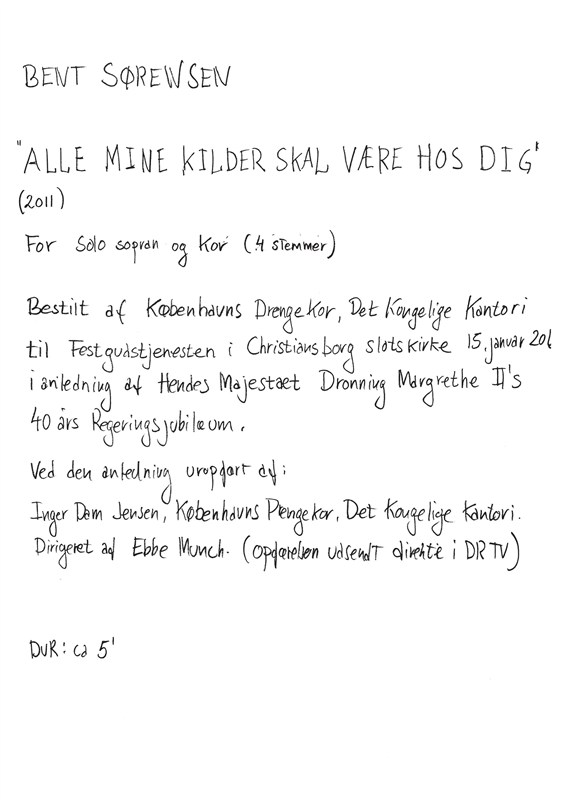 BENT SØRENSEN
"ALLE MINE KILDER SKAL VÆRE HOS DIG"
(2011)
For Solo sopran og Kor (4 stemmer)
Bestilt af Københavns Drengekor, Det Kongelige Kantori
til Festgudstjenesten i Christiansborg slotskirke 15. januar 201
i anledning af Hendes Majestæt Dronning Margrethe II's
40 års Regeringsjubilæum.
Ved den anledning uropført af:
Inger Dam Jensen, Københavns Drengekor, Det Kongelige Kantori.
Dirigeret af Ebbe Munch. (Opførelsen udsendt direkte i DR TV)
DUR: ca 5'